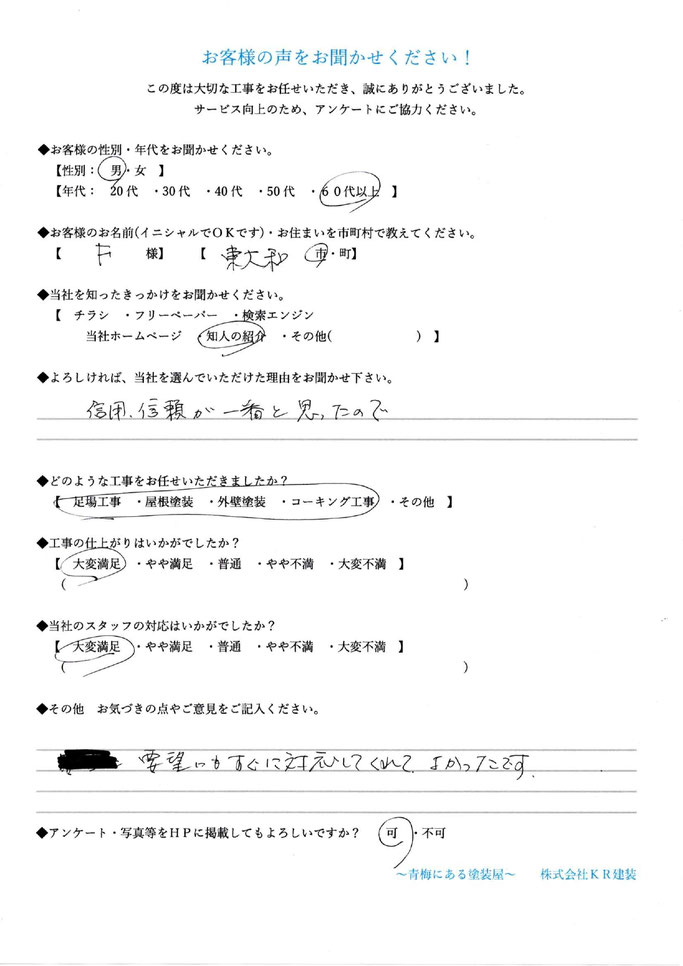 お客様の声をお聞かせください！
この度は大切な工事をお任せいただき、誠にありがとうございました。
サービス向上のため、アンケートにご協力ください。
◆お客様の性別・年代をお聞かせください。
【性別： 男・女 】
【年代： 20代 ・30代 ・40代 ・50代 ・６０代以上 】
◆お客様のお名前(イニシャルでＯＫです)・お住まいを市町村で教えてください。
【 F 様】 【 東大和 市・町】
◆当社を知ったきっかけをお聞かせください。
【 チラシ ・フリーペーパー ・検索エンジン
当社ホームページ ・知人の紹介 ・その他( ) 】
◆よろしければ、当社を選んでいただけた理由をお聞かせ下さい。
信用、信頼が一番と思ったので
◆どのような工事をお任せいただきましたか？
【 足場工事 ・屋根塗装 ・外壁塗装 ・コーキング工事 ・その他 】
◆工事の仕上がりはいかがでしたか？
【 大変満足 ・やや満足 ・普通 ・やや不満 ・大変不満 】
( )
◆当社のスタッフの対応はいかがでしたか？
【 大変満足 ・やや満足 ・普通 ・やや不満 ・大変不満 】
( )
◆その他 お気づきの点やご意見をご記入ください。
要望にもすぐに対応してくれて、よかったです。
◆アンケート・写真等をＨＰに掲載してもよろしいですか？ 可・不可
～青梅にある塗装屋～ 株式会社ＫＲ建装